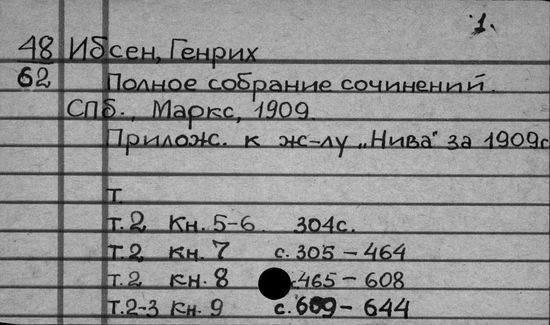 1.
48 Ибсен, Генрих
62 Полное собрание сочинений.
СПб., Маркс, 1909.
Прилож. к ж-лу „Нива" за 1909г
Т.
Т.2 Кн. 5-6. 304с.
Т.2 кн. 7 с. 305 – 464
Т.2 кн. 8 с.465 – 608
Т.2-3 Кн. 9 с. 609 – 644